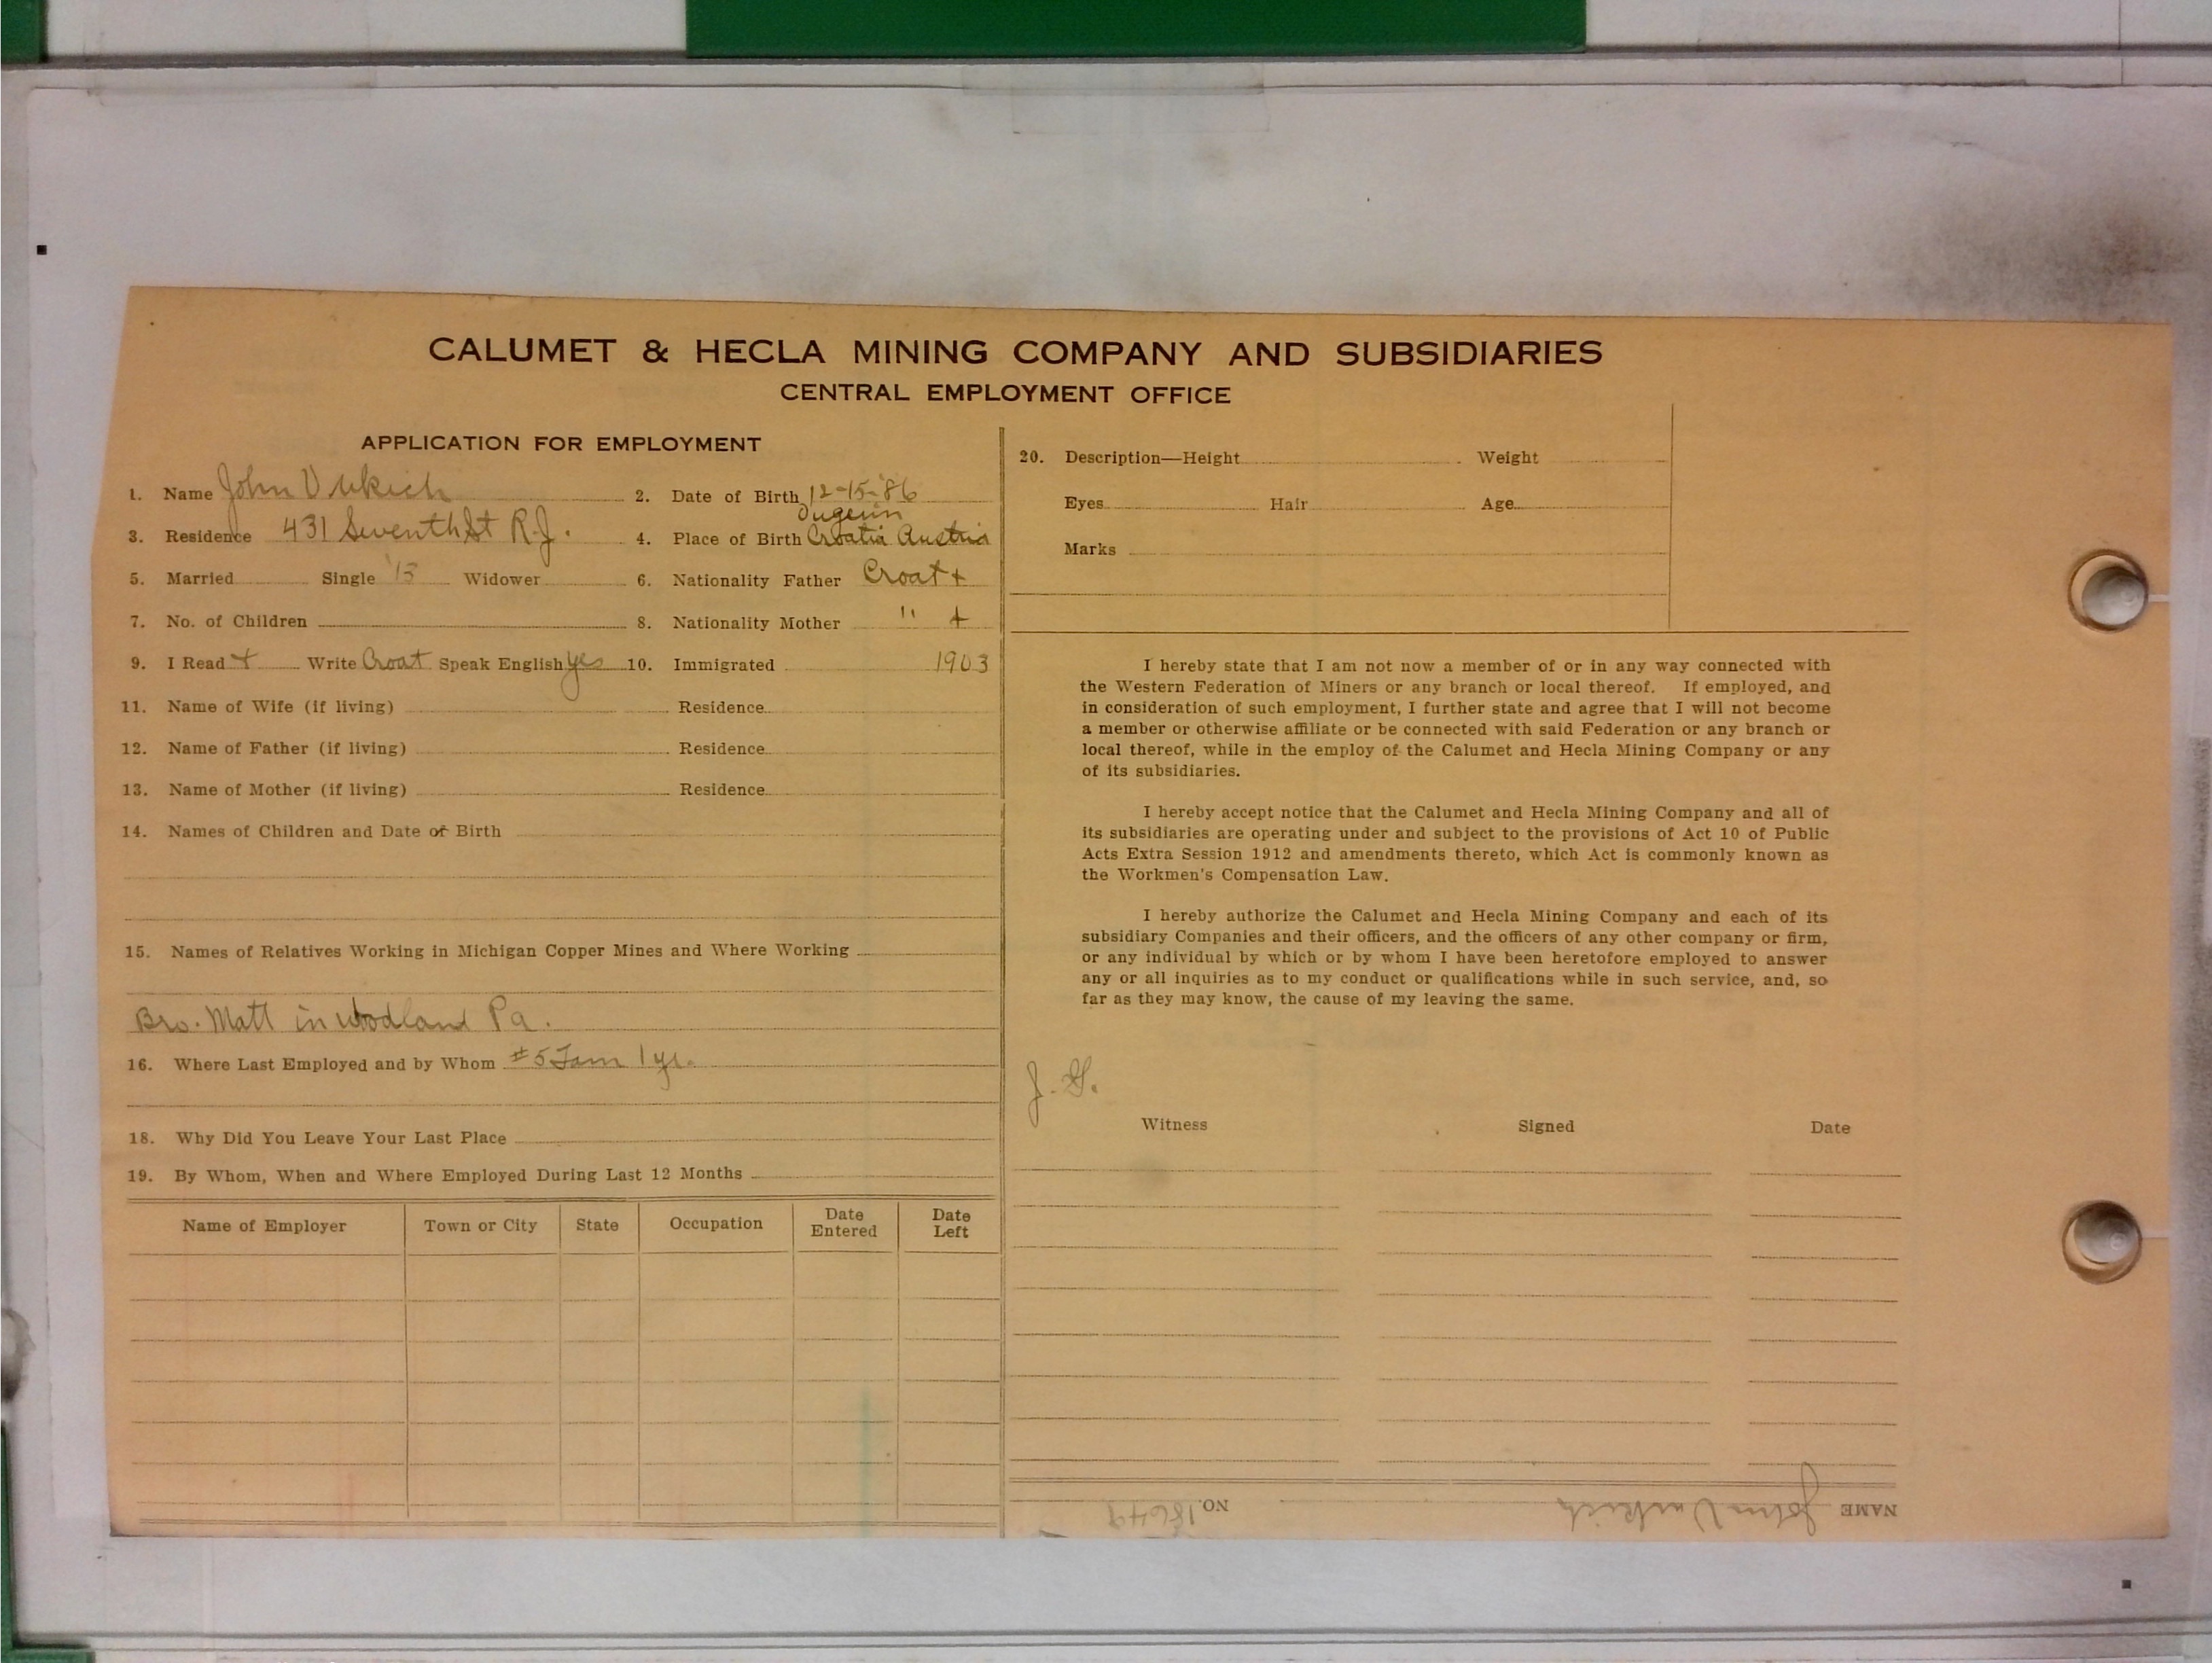 CALUMET & HECLA MINING COMPANY AND SUBSIDIARIES
CENTRAL EMPLOYMENT OFFICE
APPLICATION FOR EMPLOYMENT
1. Name John Vukich 2. Date of Birth 12-15-'86
3. Residence 431 Seventh St R.J. 4. Place of Birth Croatia Austria
5. Married Single '15 Widower 6. Nationality Father Croat +
7. No. of Children 8. Nationality Mother " +
9. I Read + Write Croat Speak English yes 10. Immigrated 1903
11. Name of Wife (if living) Residence
12. Name of Father (if living) Residence
13. Name of Mother (if living) Residence
14. Names of Children and Date of Birth
15. Names of Relatives Working in Michigan Copper Mines and Where Working
Bro. Matt in Woodland Pa.
16. Where Last Employed and by Whom #5 Tam 1 yr.
18. Why Did You Leave Your Last Place
19. By Whom, When and Where Employed During Last 12 Months
Name of Employer Town or City State Occupation Date Entered Date Left
20. Description—Height Weight
Eyes Hair Age
Marks
I hereby state that I am not now a member of or in any way connected with
the Western Federation of Miners or any branch or local thereof. If employed, and
in consideration of such employment, I further state and agree that I will not become
a member or otherwise affiliate or be connected with said Federation or any branch or
local thereof, while in the employ of the Calumet and Hecla Mining Company or any
of its subsidiaries.
I hereby accept notice that the Calumet and Hecla Mining Company and all of
its subsidiaries are operating under and subject to the provisions of Act 10 of Public
Acts Extra Session 1912 and amendments thereto, which Act is commonly known as
the Workmen's Compensation Law.
I hereby authorize the Calumet and Hecla Mining Company and each of its
subsidiary Companies and their officers, and the officers of any other company or firm,
or any individual by which or by whom I have been heretofore employed to answer
any or all inquiries as to my conduct or qualifications while in such service, and, so
far as they may know, the cause of my leaving the same.
Witness Signed Date
NAME John Vukich NO. 18649